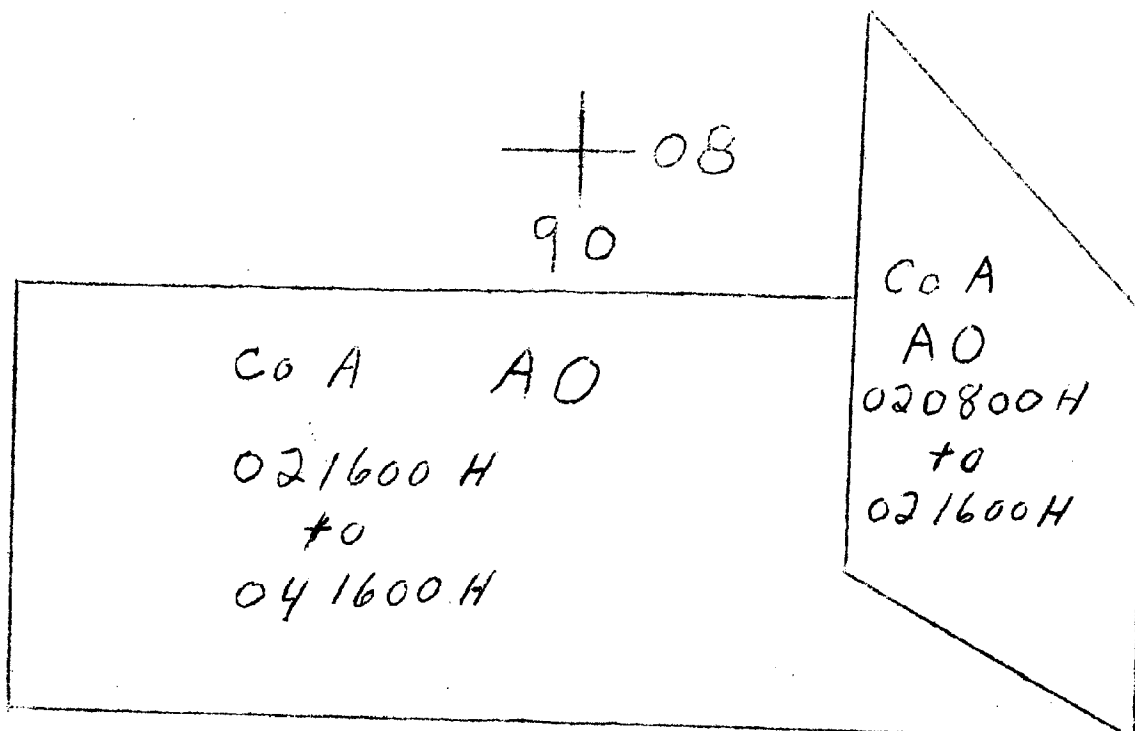 08
90
Co A AO
021600 H
to
041600 H
Co A
AO
020800 H
to
021600 H